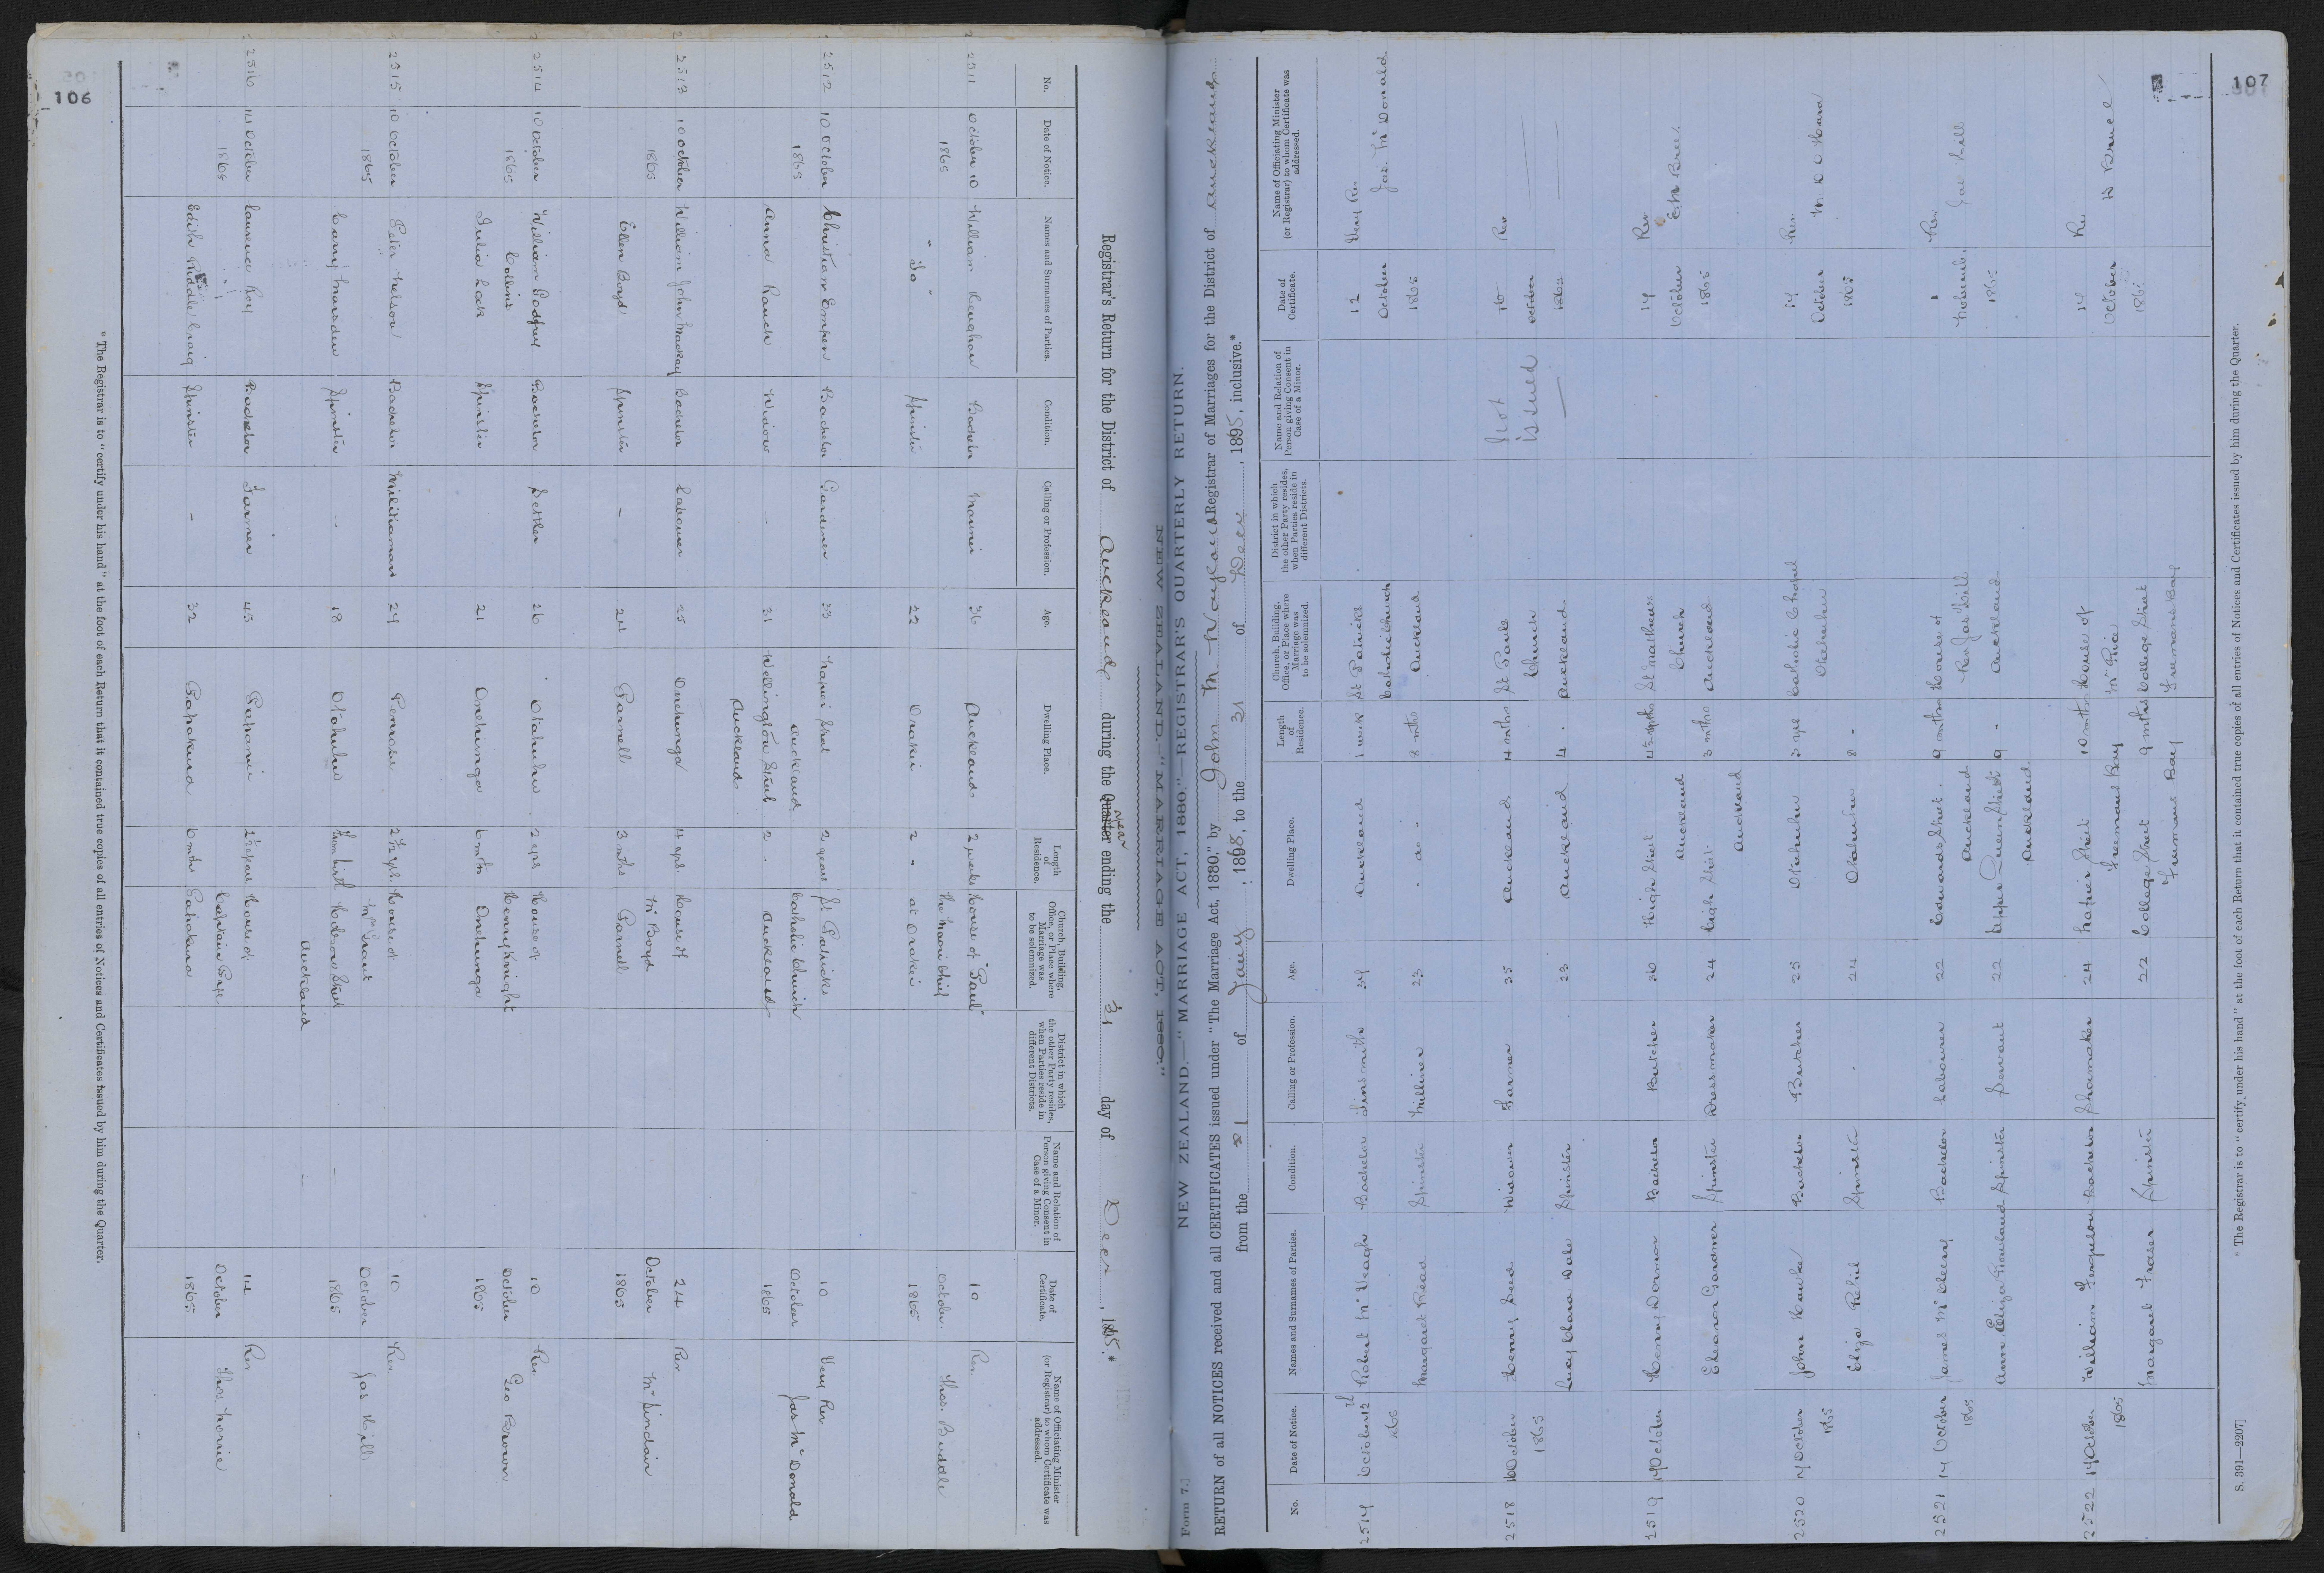 106
Registrar's Return for the District of Auckland during the Quarter year ending the 31 day of Decr, 1865.*
No.
Date of Notice.
Names and Surnames of Parties.
Condition.
Calling or Profession.
Age.
Dwelling Place.
Length of Residence.
Church, Building, Office, or Place where Marriage was to be solemnized.
District in which the other Party resides, when Parties reside in different Districts.
Name and Relation of Person giving Consent in Case of a Minor.
Date of Certificate.
Name of Officiating Minister (or Registrar) to whom Certificate was addressed.
2511 October 10 William Bachelor 36 Auckland 2 weeks House of "Paul" 10 Rev.
1865 the Maori Chief October Thos. Buddle
" Do " Spinster 22 Orakei 2 " at Orakei 1865
2512 10 October Christian Bachelor Gardener 33 Napier Street 2 years St Patricks 10 Very Rev
1865 Auckland Catholic Church October Jas McDonald
Anna Rauch Widow — 31 Wellington Street 2 " Auckland 1865
Auckland
2513 10 October William John Mackay Bachelor Labourer 25 Onehunga House of 24 Rev
1865 Mr Boyd October Mr Sinclair
Ellen Boyd Spinster — 24 Parnell 3 mths Parnell 1865
2514 10 October William Godfrey Bachelor Settler 26 Otahuhu 2 yrs House of 10 Rev.
1865 Collins Henry Knight October Geo Brown
Julia Lock Spinster 21 Onehunga 6 mths Onehunga 1865
2515 10 October Peter Nelson Bachelor Militiaman 29 Penrose 2 1/2 yrs. House of 10 Rev.
1865 Mrs Grant October Jas Hill
Marsden Spinster — 18 Otahuhu from birth Hobson Street — 1865
Auckland —
2516 14 October Laurence Roy Bachelor Farmer 45 2 1/2 years House of 14 Rev
1865 Captain Pope October Thos Norrie
Edith Riddle Craig Spinster — 32 Papakura 6 mths Papakura 1865
* The Registrar is to "certify under his hand" at the foot of each Return that it contained true copies of all entries of Notices and Certificates issued by him during the Quarter.
107
Form 7.]
NEW ZEALAND.—"MARRIAGE ACT, 1880."—REGISTRAR'S QUARTERLY RETURN.
RETURN of all NOTICES received and all CERTIFICATES issued under "The Marriage Act, 1880," by John M Registrar of Marriages for the District of Auckland
from the 1 of Jany, 1865, to the 31 of Decr, 1865, inclusive.*
No.
Date of Notice.
Names and Surnames of Parties.
Condition.
Calling or Profession.
Age.
Dwelling Place.
Length of Residence.
Church, Building, Office, or Place where Marriage was to be solemnized.
District in which the other Party resides, when Parties reside in different Districts.
Name and Relation of Person giving Consent in Case of a Minor.
Date of Certificate.
Name of Officiating Minister (or Registrar) to whom Certificate was addressed.
2517 October 12th Robert McVeagh Bachelor Tinsmith 29 Auckland 1 week St Patricks 12 Very Rev
1865 Catholic Church October Jas. McDonald
Margaret Read Spinster Milliner 23 " do " 8 mths Auckland 1865
2518 16 October Henry Widower Farmer 35 Auckland 4 mths St Pauls Not 16 Rev
1865 Church issued October
Lucy Clara Dale Spinster 23 Auckland 4 " Auckland — 1865
2519 17 October Henry Bachelor Butcher 30 High Street 4 1/2 mths St Matthews 17 Rev
Auckland Church October
Eleanor Gardner Spinster Dressmaker 24 High Street 3 mths Auckland 1865
Auckland
2520 17 October John Bachelor Butcher 25 Otahuhu Catholic Chapel 17 Rev.
1865 Otahuhu October M D O Hara
Eliza Spinster 24 Otahuhu 8 " 1865
2521 17 October James Bachelor Labourer 22 Edwards Street 9 mths House of 1 Rev
1865 Auckland Rev Jas Hill November Jas Hill
Ann Eliza Spinster Servant 22 Upper Queen Street 9 " Auckland 1865
Auckland
2522 17 October William Ferguson Bachelor Shoemaker 24 Napier Street 10 mths House of 17 Rev.
1865 Freemans Bay October D Bruce
Margaret Fraser Spinster 22 College Street 9 mths College Street 1865
Freemans Bay Freemans Bay
* The Registrar is to "certify under his hand" at the foot of each Return that it contained true copies of all entries of Notices and Certificates issued by him during the Quarter.
S. 391—2207]